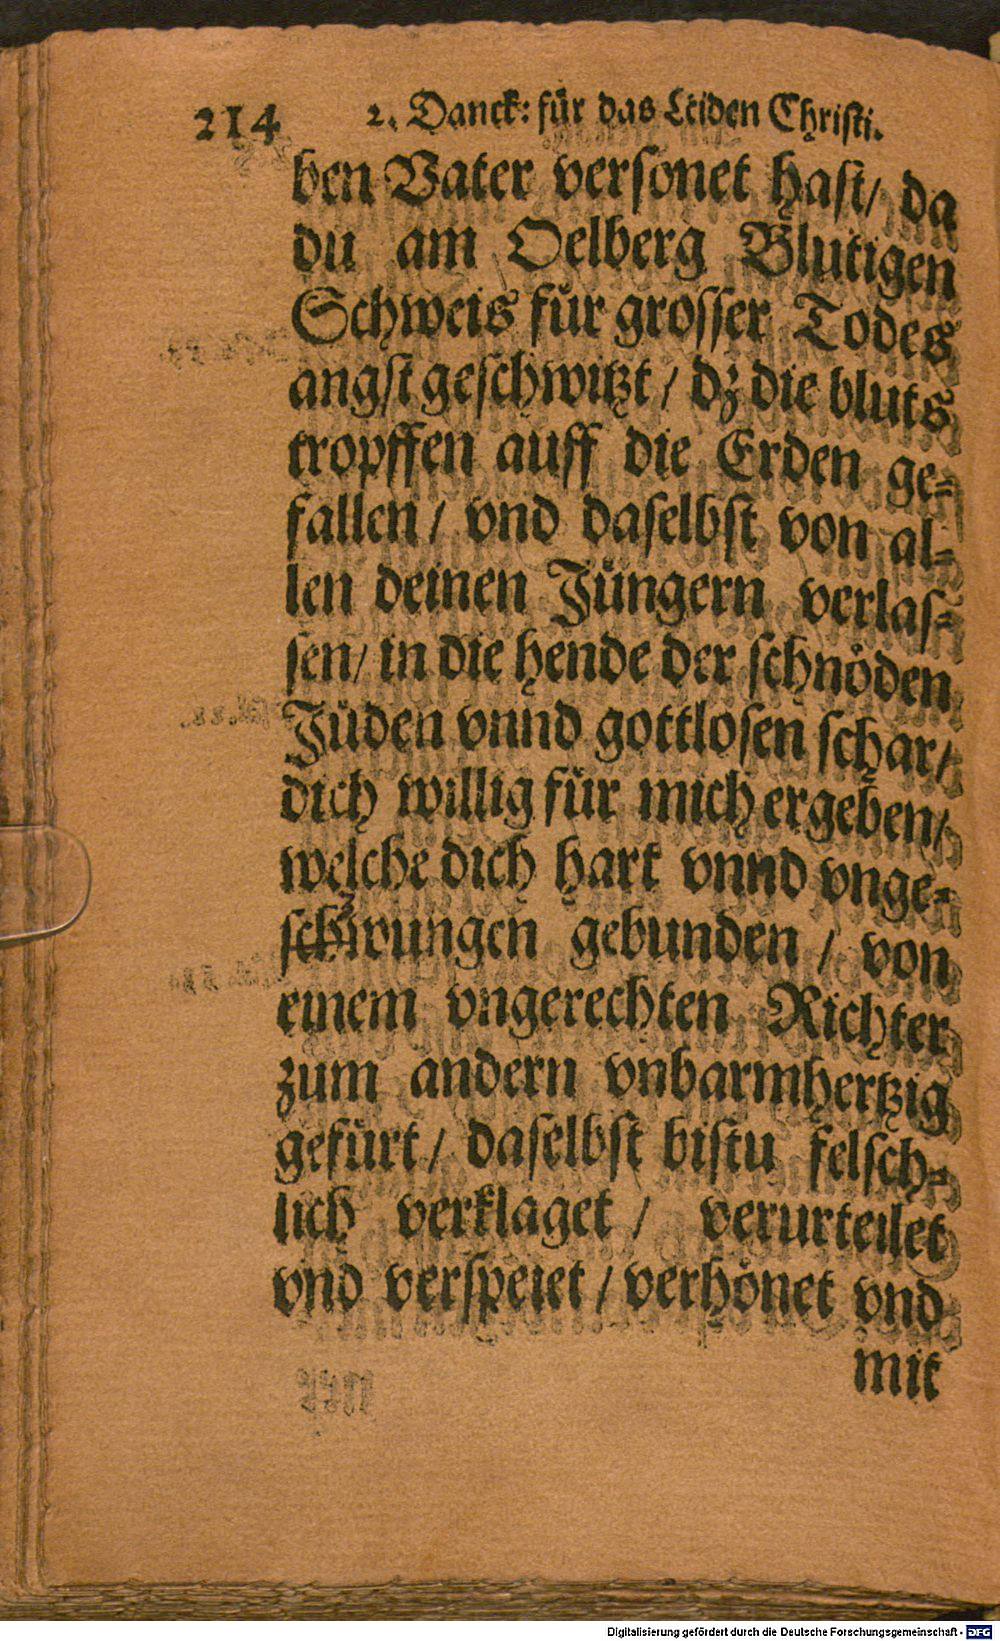 214 2. Danck: für das Leiden Christi.
ben Vater versonet hast/ da
du am Oelberg Blutigen
Schweis für grosser Todes
angst geschwitzt / dz die bluts
tropffen auff die Erden ge-
fallen/ vnd daselbst von al-
len deinen Jüngern verlas-
sen/ in die hende der schnöden
Jüden vnnd gottlosen schar/
dich willig für mich ergeben/
welche dich hart vnnd vnge-
schwungen gebunden / von
einem vngerechten Richter
zum andern vnbarmhertzig
gefürt/ daselbst bistu felsch-
lich verklaget / verurteilet
vnd verspeiet / verhönet vnd
mit
Digitalisierung gefördert durch die Deutsche Forschungsgemeinschaft - DFG